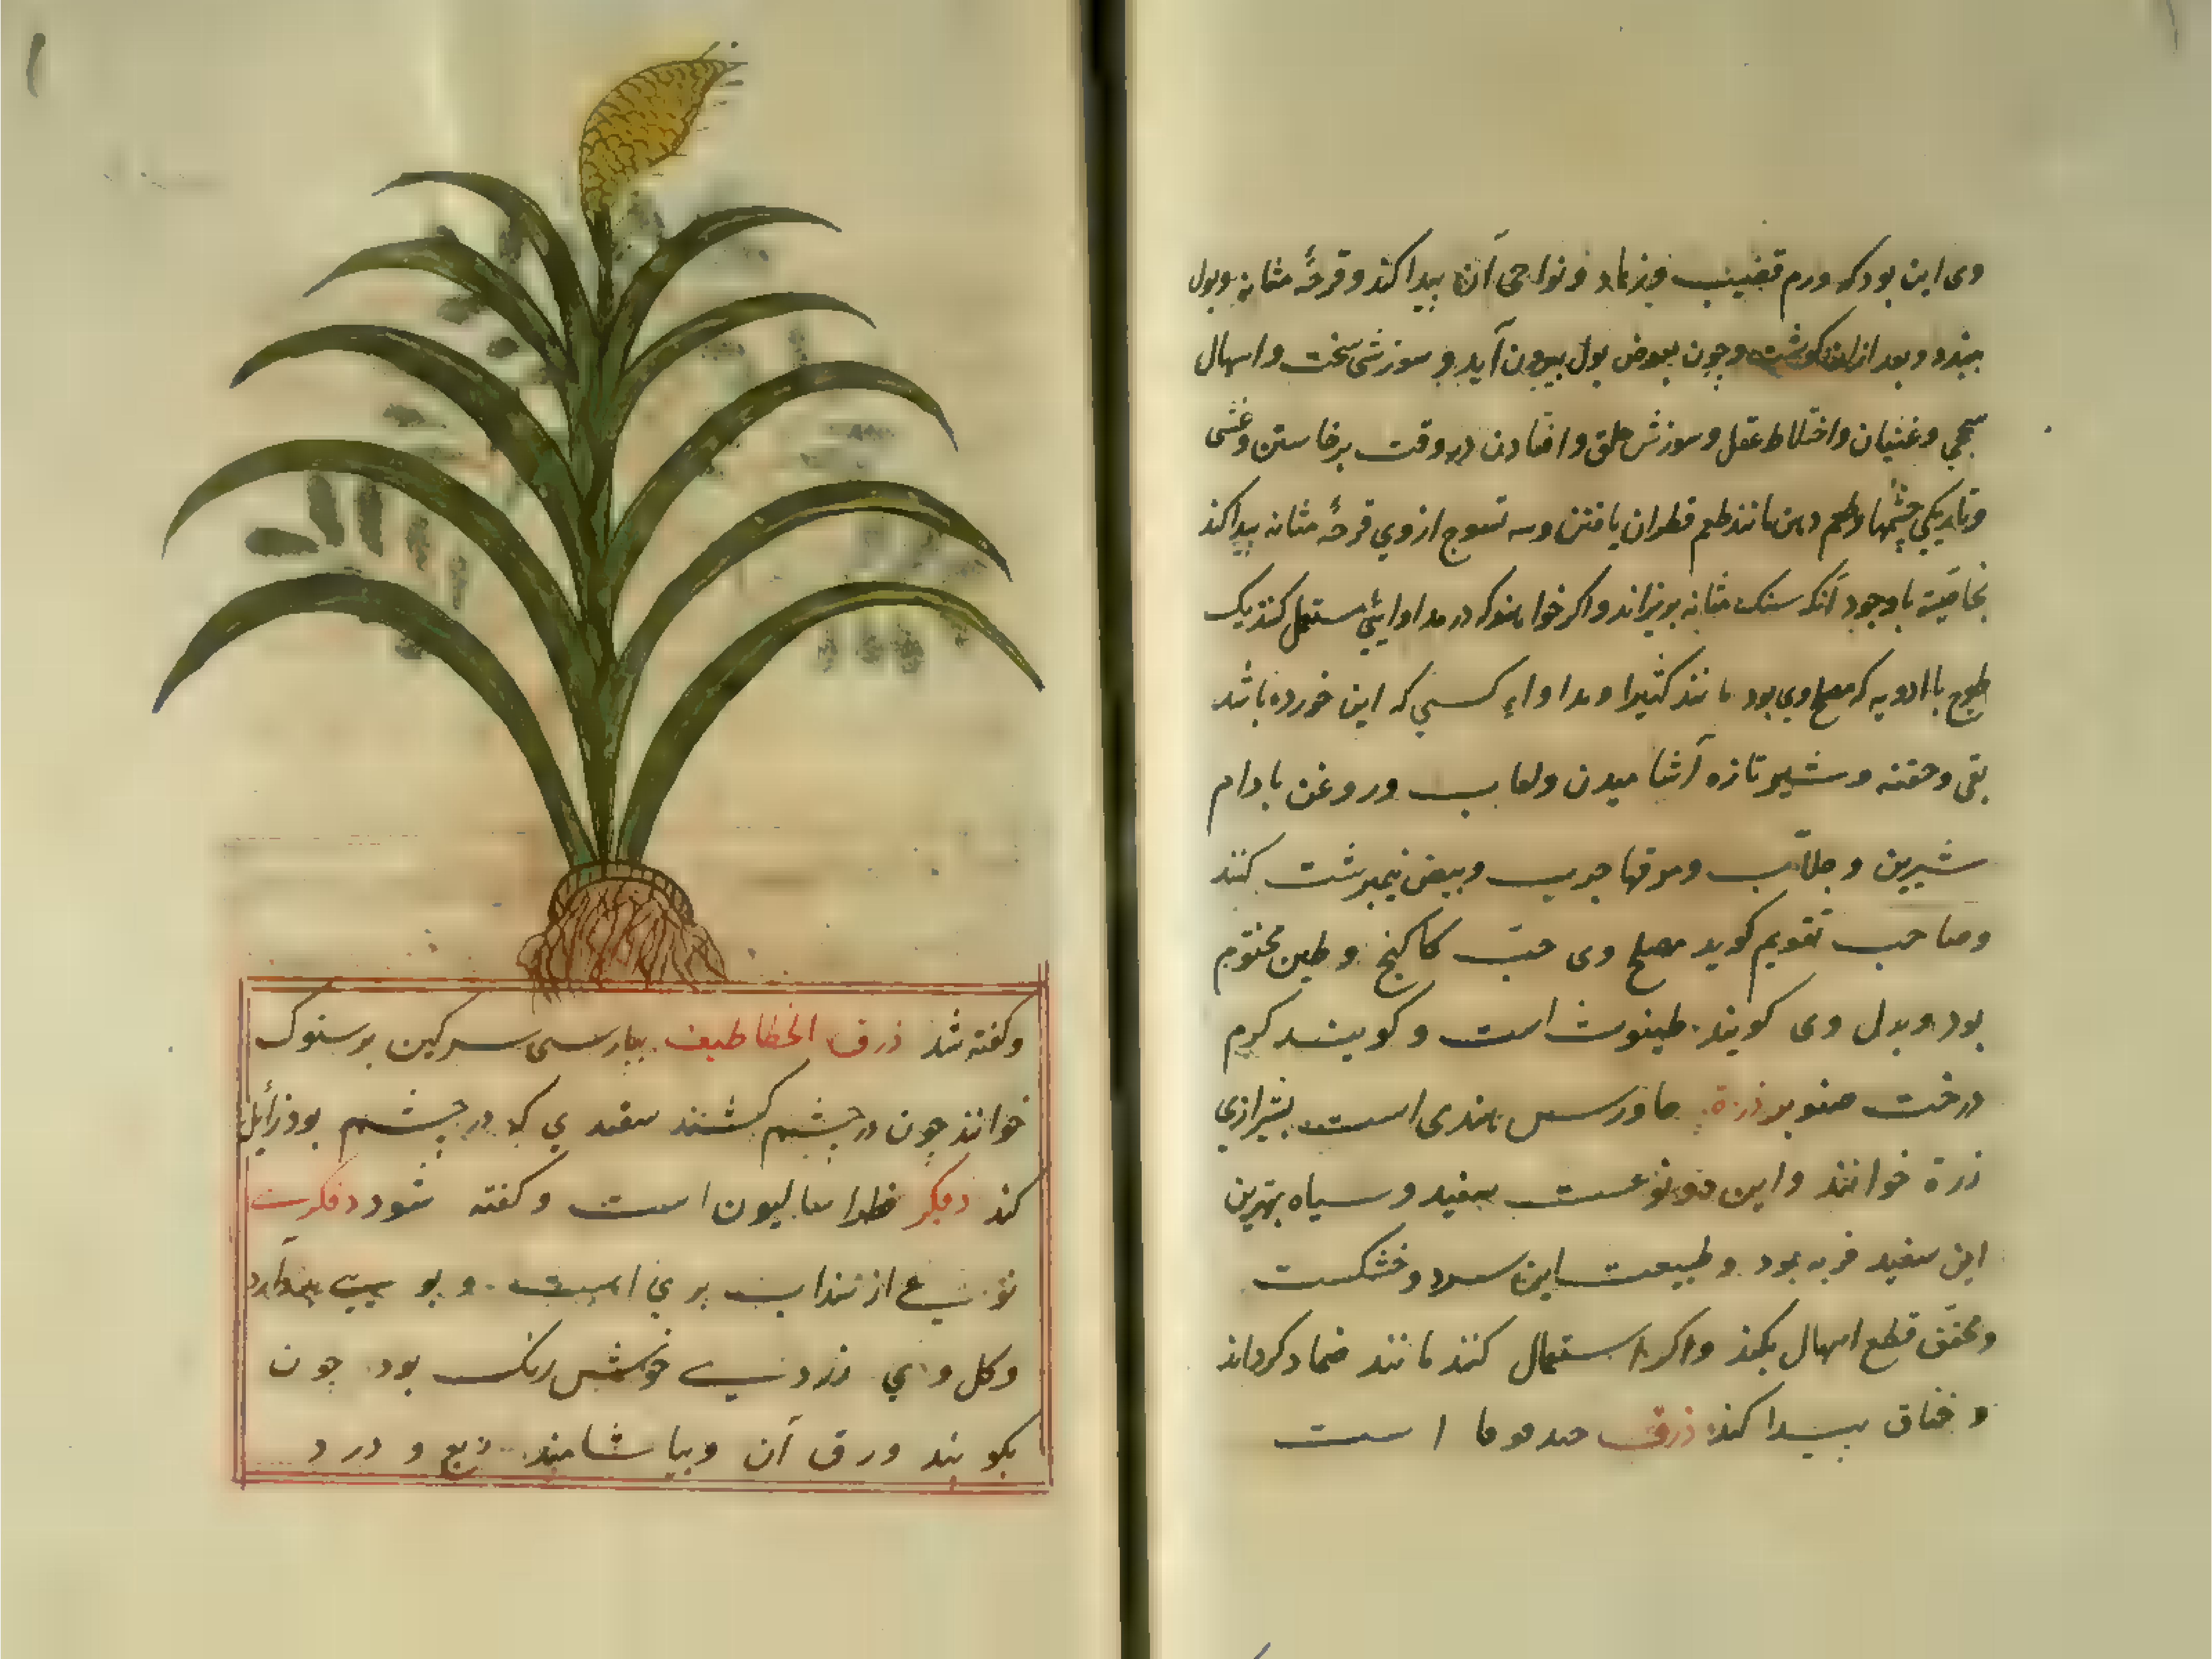 وی این بود که ورم قضیب و زهار و نواحی آن پیدا کند و قرحهٔ مثانه و بول
ببندد و بعد ازان گوشت و خون بعوض بول بیرون آید و سوزشی سخت و اسهال
سحجی و غثیان و اختلاط عقل و سوزش حلق و افتادن در وقت برخاستن و غشی
و تاریکی چشمها و طعم دهن مانند طعم قطران یافتن و سه تسوج از وی قرحهٔ مثانه پیدا کند
بخاصیّة باوجود آنکه سنک مثانه بریزاند و اکر خواهند که در مداوایی مستعمل کنند یک
طسوج با ادویه که مصلح وی بود مانند کثیرا و مداواء کسی که این خورده باشد
بقی و حقنه و شیر تازه آشامیدن و لعاب و روغن بادام
شیرین و جلاّب و مرقها چرب و بیض نیمبرشت کنند
و صاحب تقویم کوید مصلح وی حبّ کاکنج و طین مختوم
بود و بدل وی کویند طینوث است و کویند کرم
درخت صنوبر ذرة جاورس هندی است بشیرازی
زرة خوانند و این دو نوعست سفید و سیاه بهترین
این سفید فربه بود و طبیعت این سرد و خشکست
و مجفف قطع اسهال بکند و اکر استعمال کنند مانند ضماد کرداند
و خناق پیدا کند ذرق است
و کفته شد ذرق الخطاطیف بپارسی سرکین پرستوک
خوانند چون در چشم کشند سفیدی که در چشم بود زایل
کند دیکر است و کفته شود
نوع از سذاب بری است و بو
و کل وی زرد خوش رنک بود چون
بکوبند ورق آن و بیاشامند ربع و درد